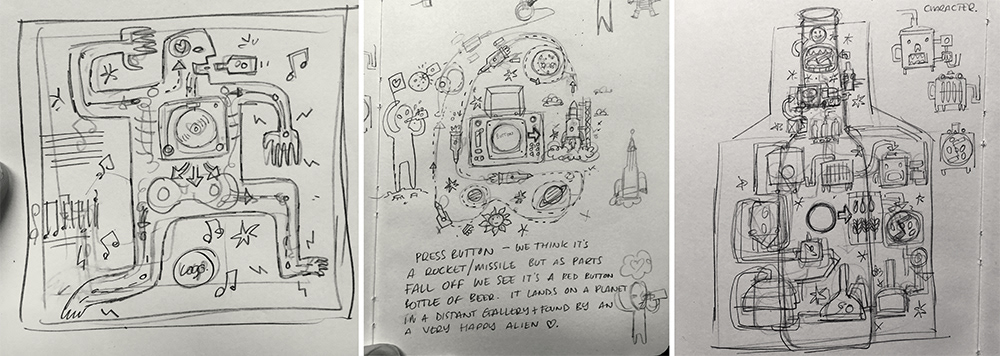 Logo
PRESS BUTTON – WE THINK IT'S
A ROCKET/MISSILE BUT AS PARTS
FALL OFF WE SEE IT'S A RED BUTTON
BOTTLE OF BEER. IT LANDS ON A PLANET
IN A DISTANT GALLERY + FOUND BY AN
A VERY HAPPY ALIEN ♡.
CHARACTER.